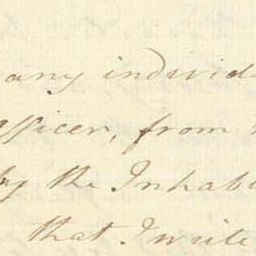 any individ
officer, from
by the Inhabi
that I write